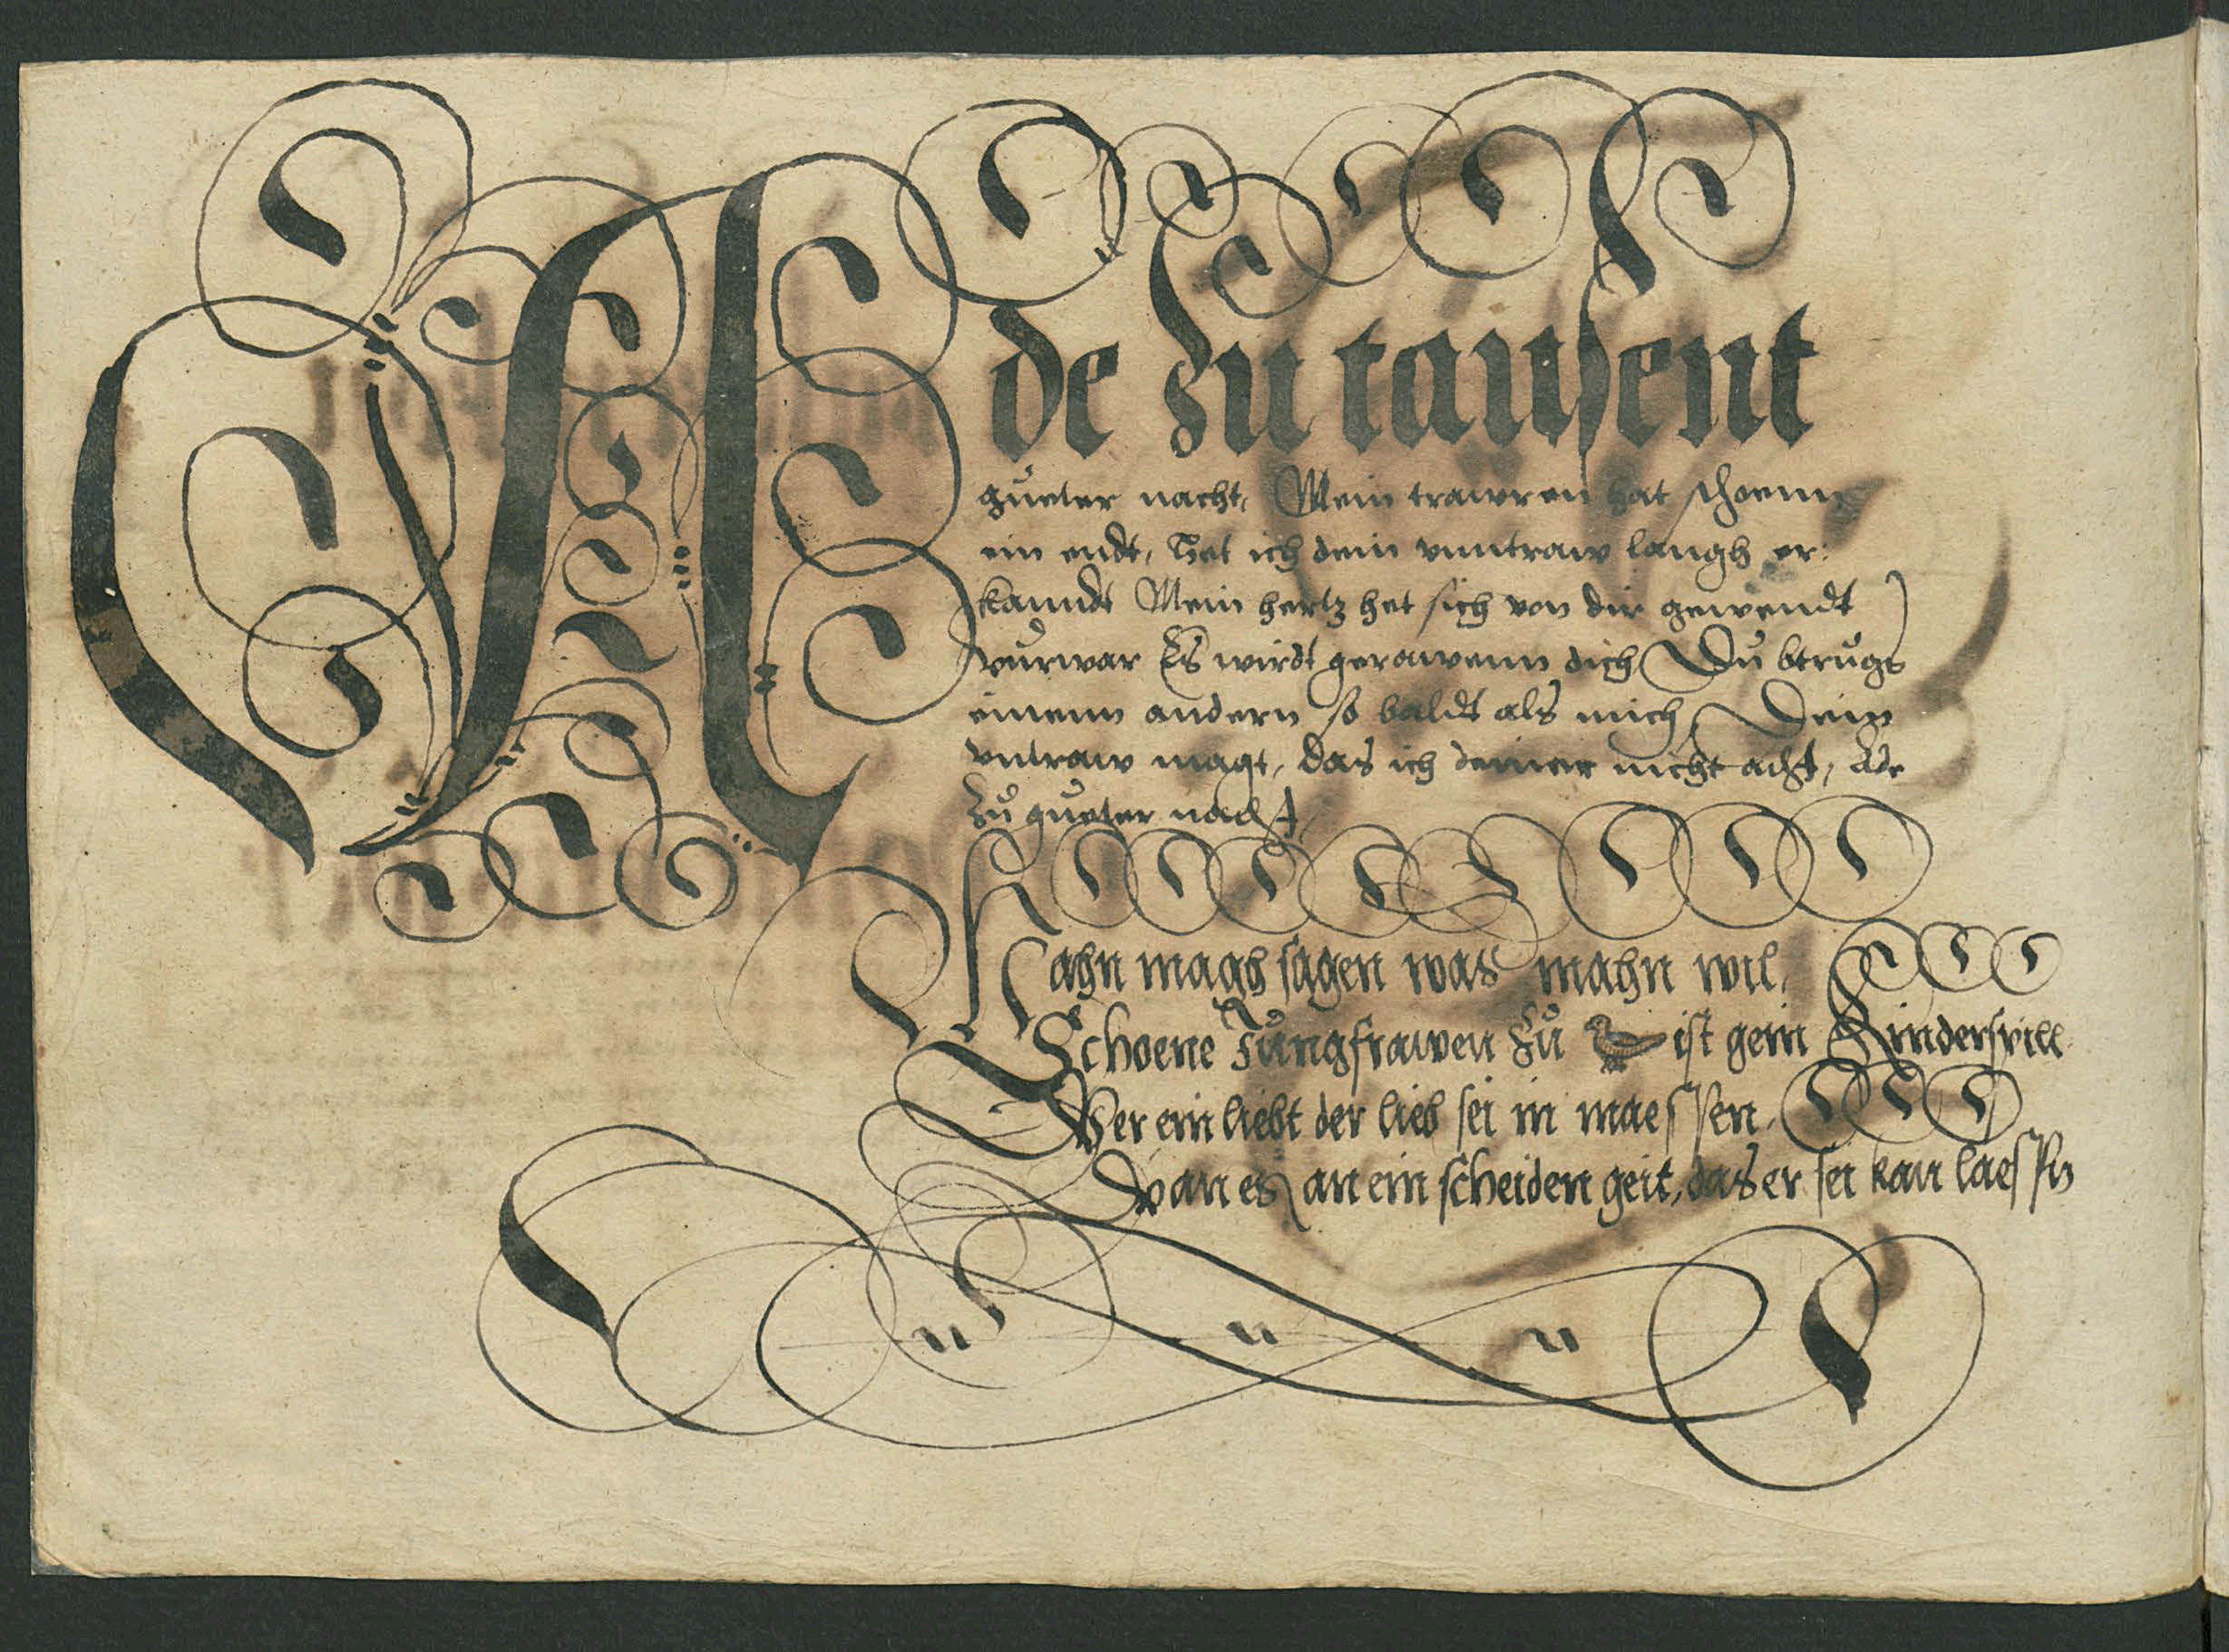 Ade zu tausent
gueter nacht, Mein trawren hat schoenn
ein endt, Het ich dein vnntraw langh er:
kanndt Mein hertz het sich von dir gewendt
vurwar Es wirdt gerawenn dich Du btrugs
einenn andern so baldt als mich, Dein
vntraw magt, das ich deiner nicht acht, Ade
zu gueter nacht
Mahn magh sagen was mahn wil,
Schoene Jungfrawen zu ist gein Kinderspill
Wer ein liebt der lieb sei in maessen,
Wan es an ein scheiden geit, das er sei kan laessen